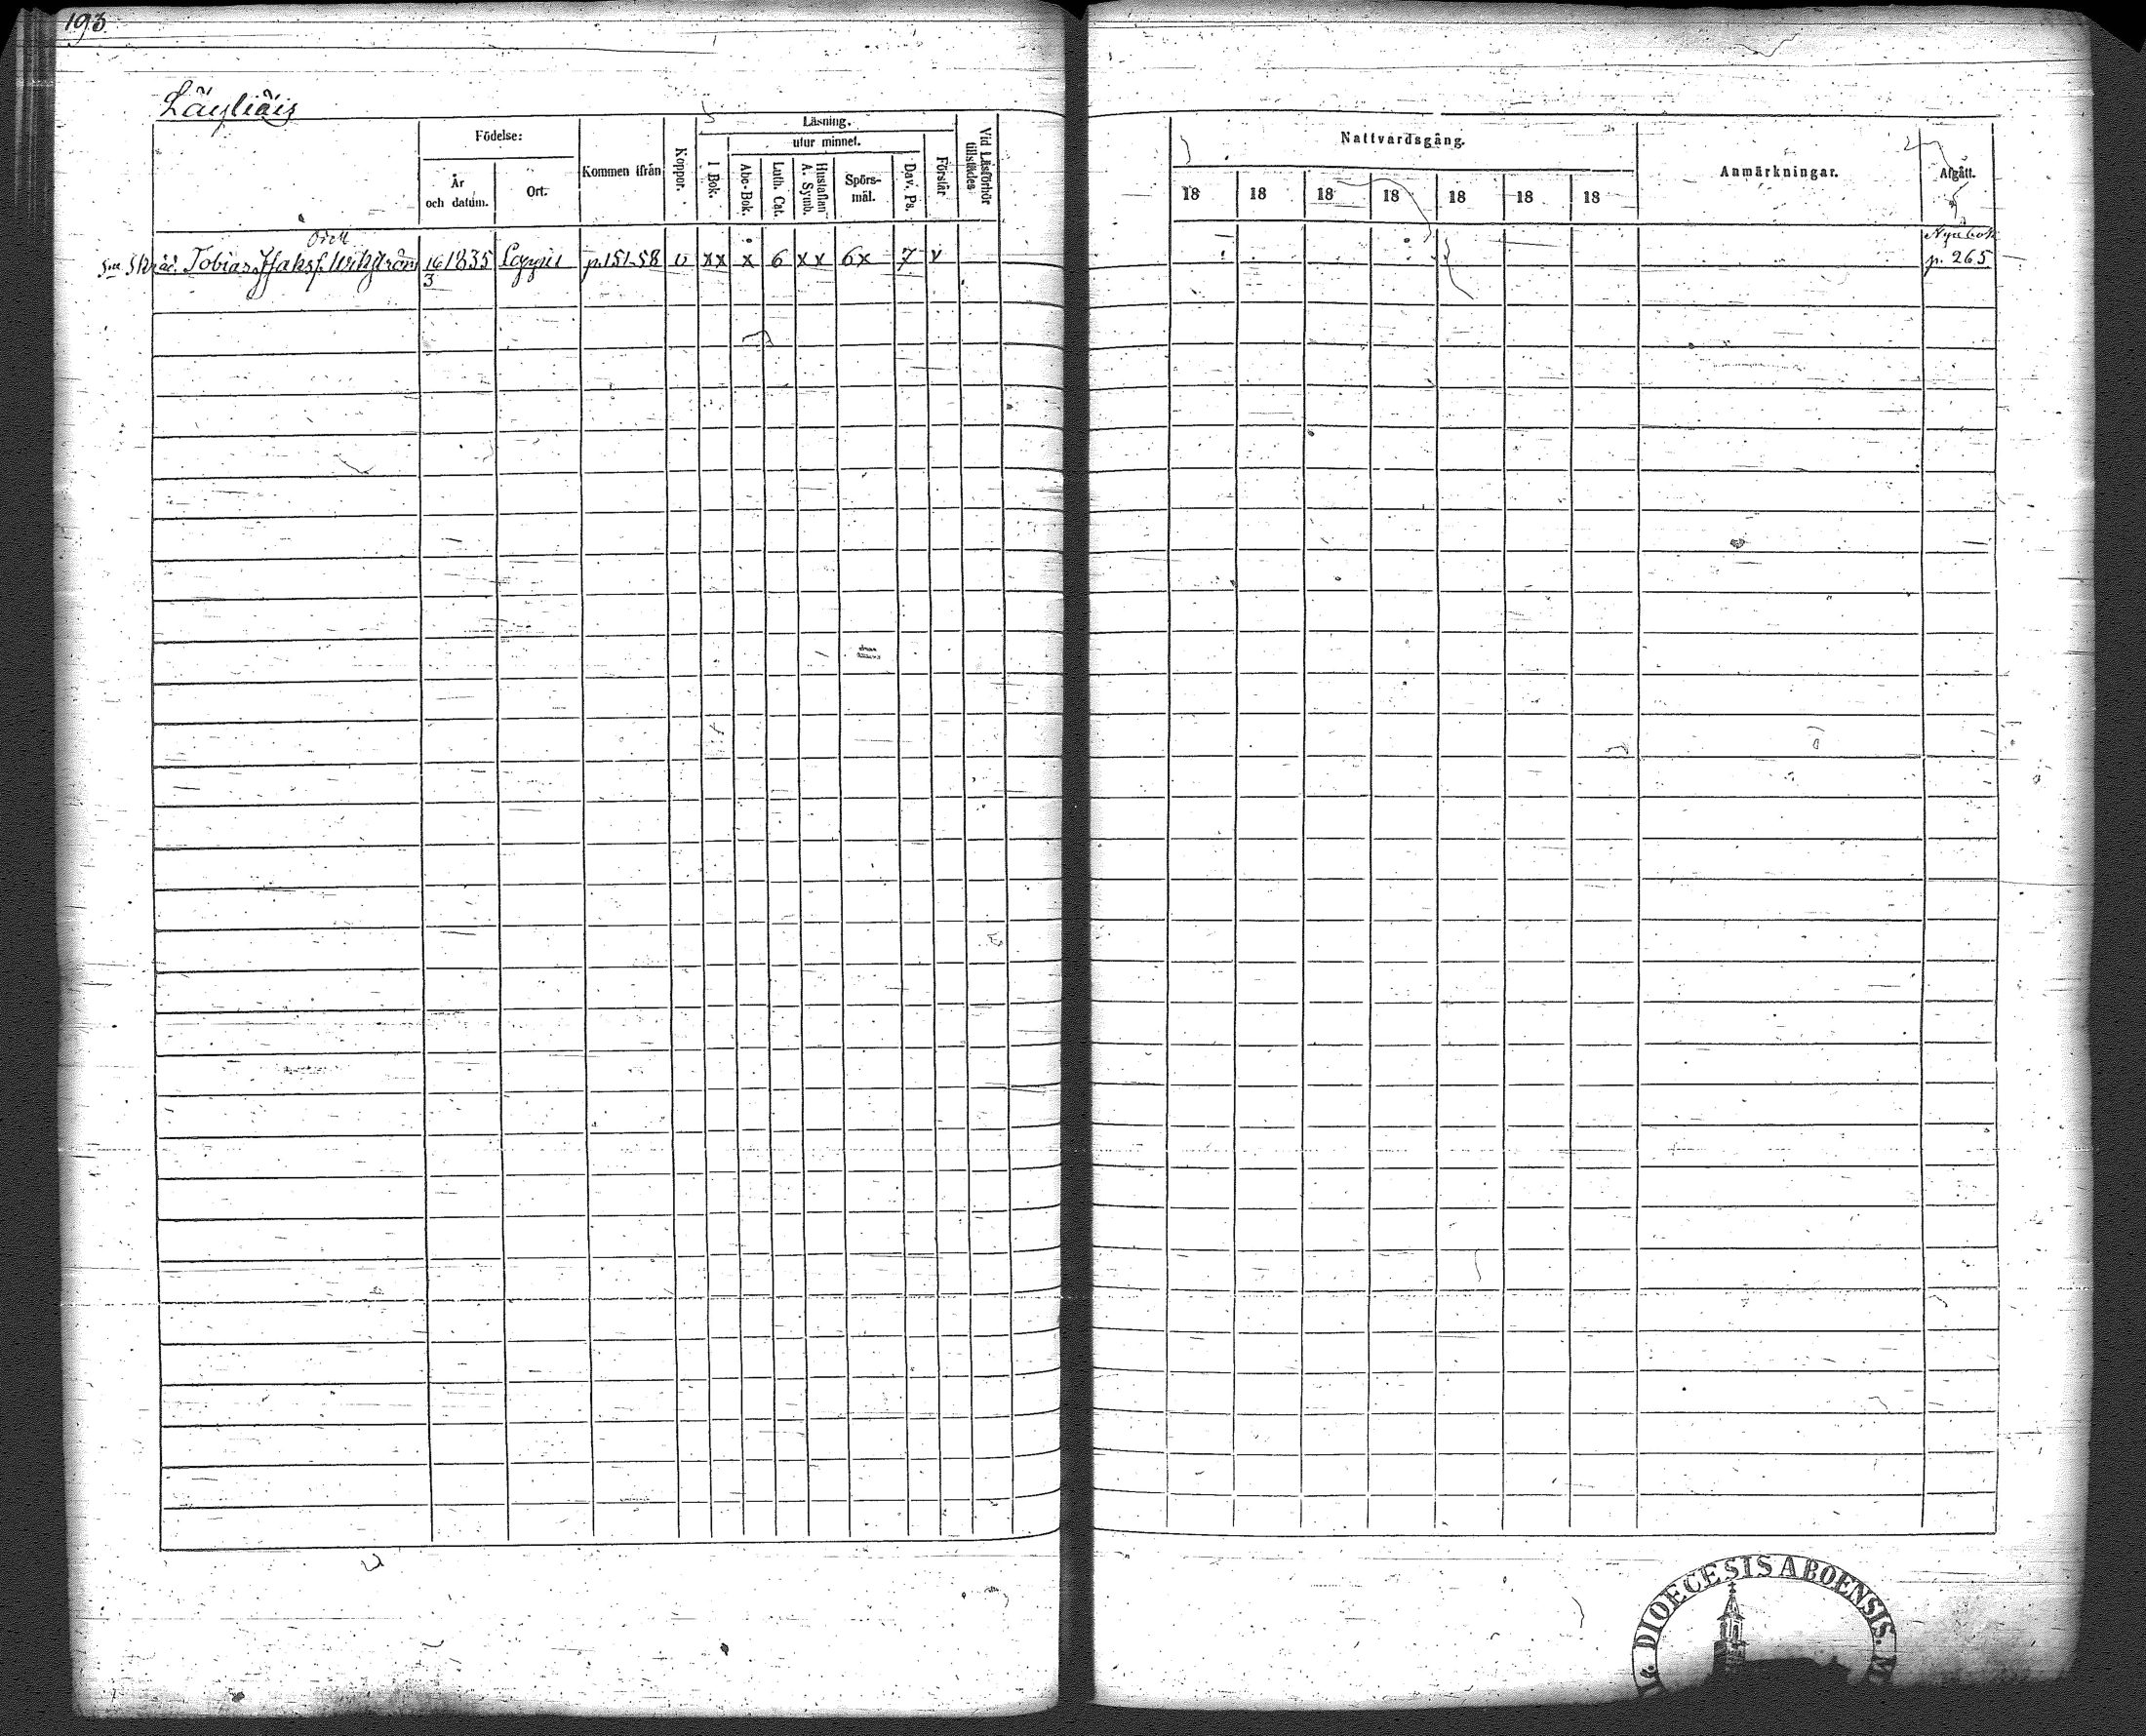 193.
Läyliäis
Födelse:
År och datum.
Ort.
Kommen ifrån
Koppor.
Läsning.
I Bok.
utur minnet.
Abc-Bok.
Luth. Cat.
Hustaflan A. Symb.
Spörs-mål.
Dav. Ps.
Förstår
Vid Läsförhör tillstädes
Nattvardsgång.
18 18 18 18 18 18 18
Anmärkningar.
Afgått.
Tobias 16 1835 p. 151. 58 v xx x 6 xx 6x 7 v Nya bok
3 p. 265
DIOECESIS ABOENSIS.